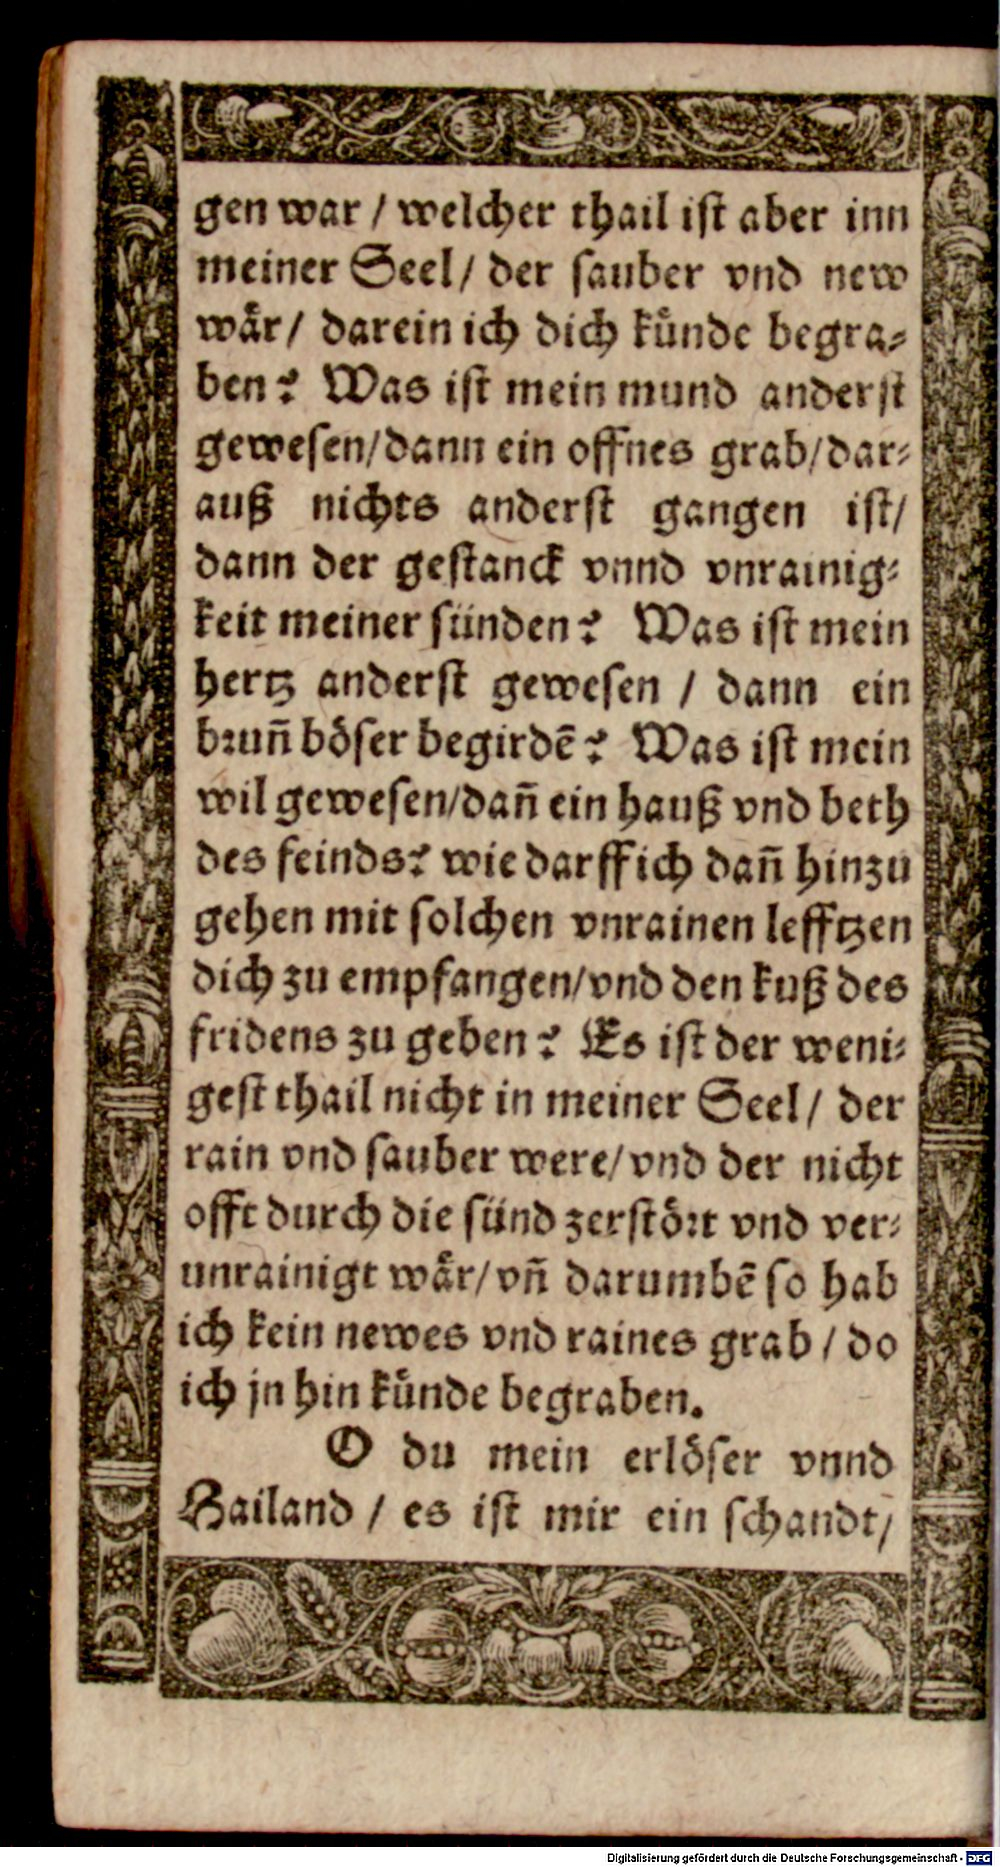 gen war / welcher thail ist aber inn
meiner Seel / der sauber vnd new
wår / darein ich dich kůnde begra⸗
ben? Was ist mein mund anderst
gewesen / dann ein offnes grab / dar⸗
auß nichts anderst gangen ist /
dann der gestanck vnnd vnrainig⸗
keit meiner sünden? Was ist mein
hertz anderst gewesen / dann ein
brunñ böser begirdē? Was ist mein
wil gewesen / dañ ein hauß vnd beth
des feinds? wie darff ich dañ hinzu
gehen mit solchen vnrainen lefftzen
dich zu empfangen / vnd den kuß des
fridens zu geben? Es ist der weni⸗
gest thail nicht in meiner Seel / der
rain vnd sauber were / vnd der nicht
offt durch die sünd zerstört vnd ver⸗
unrainigt wår / vñ darumbē so hab
ich kein newes vnd raines grab / do
ich jn hin kůnde begraben.
O du mein erlöser vnnd
Hailand / es ist mir ein schandt /
Digitalisierung gefördert durch die Deutsche Forschungsgemeinschaft - DFG